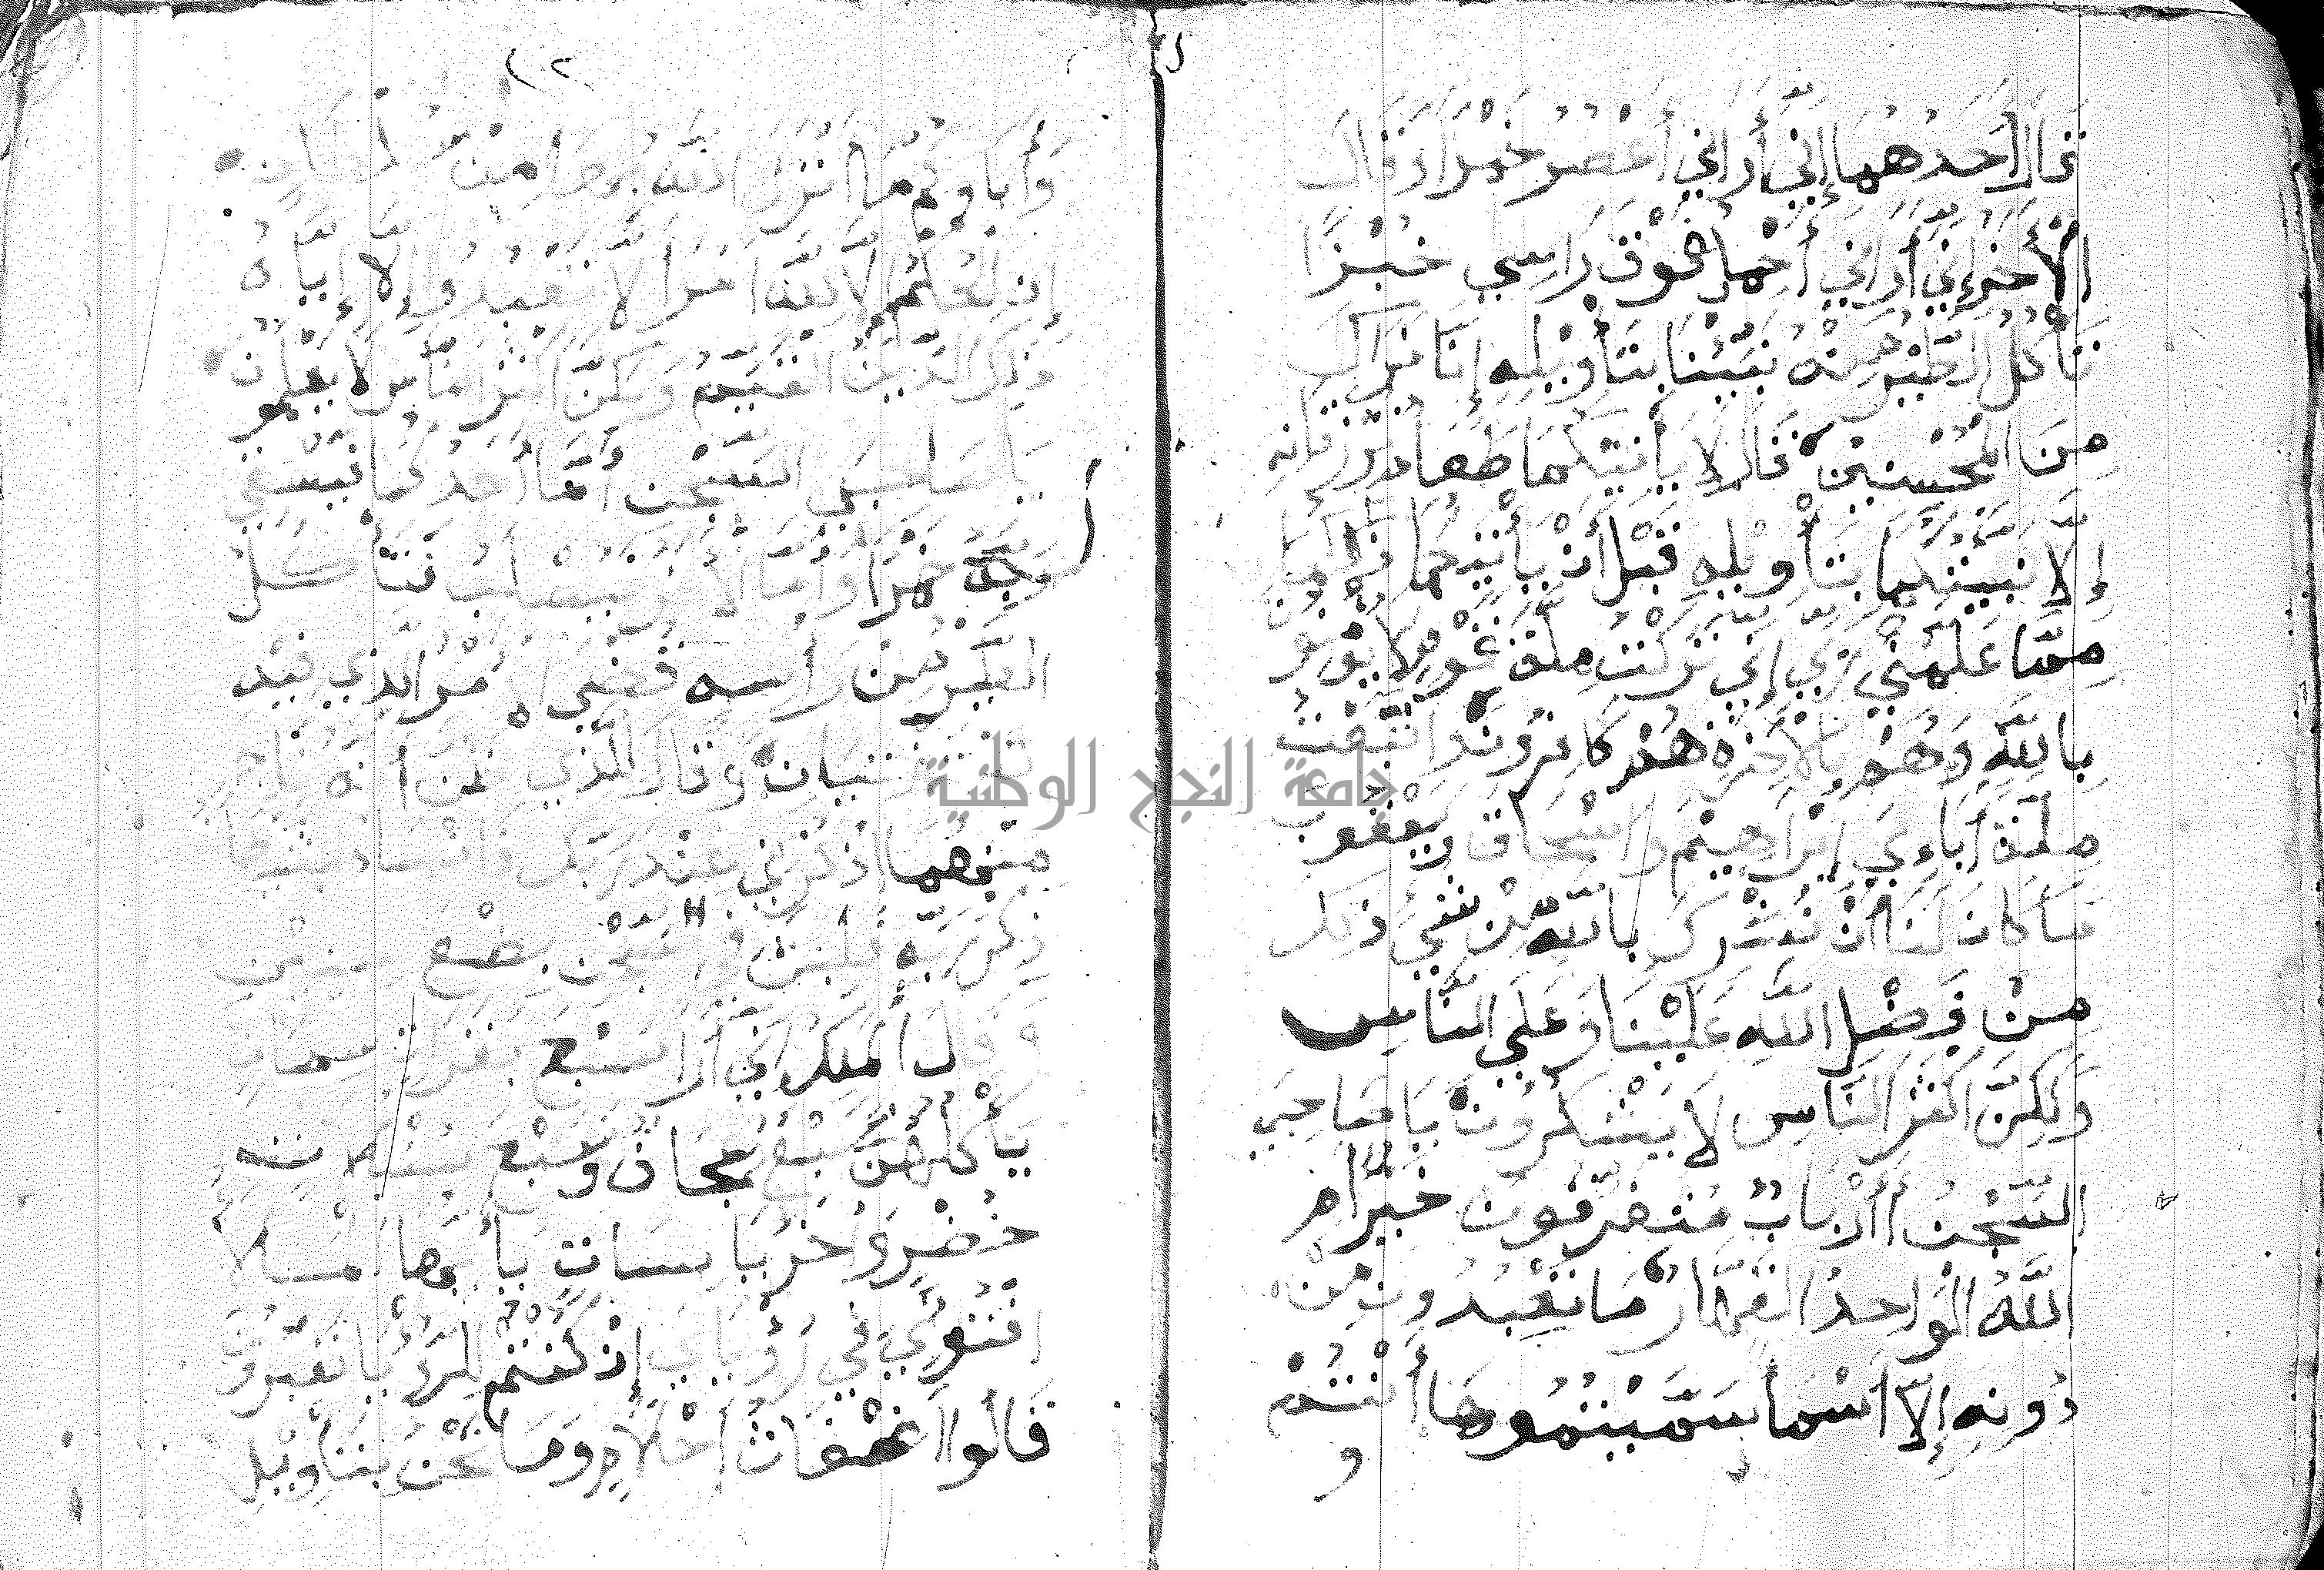 قَالَ أَحَدُهُمَا إِنِّي أَرَانِي أَعْصُرُ خَمْرًا وَقَالَ
الْأَخَرُ إِنِّي أَرَانِي أَحْمِلُ فَوْقَ رَاسِي خُبْزًا
تَأْكُلُ الطَّيْرُ مِنْهُ نَبِّئْنَا بِتَأْوِيلِهِ إِنَّا نَرَاكَ
مِنَ الْمُحْسِنِينَ قَالَ لَا يَأْتِيكُمَا طَعَامٌ تُرْزَقَانِهِ
إِلَّا نَبَّئْتُكُمَا بِتَأْوِيلِهِ قَبْلَ أَنْ يَأْتِيَكُمَا ذَالِكُمَا
مِمَّا عَلَّمَنِي رَبِّي إِنِّي تَرَكْتُ مِلَّةَ قَوْمٍ لَا يُؤْمِنُونَ
بِاللَّهِ وَهُمْ بِالْأَخِرَةِ هُمْ كَافِرُونَ وَاتَّبَعْتُ
مِلَّةَ أَبَاءِي إِبْرَاهِيمَ وَإِسْحَاقَ وَيَعْقُوبَ
مَا كَانَ لَنَا أَنْ نُشْرِكَ بِاللَّهِ مِنْ شَيْءٍ ذَلِكَ
مِنْ فَضْلِ اللَّهِ عَلَيْنَا وَعَلَى النَّاسِ
وَلَكِنَّ أَكْثَرَ النَّاسِ لَا يَشْكُرُونَ يَا صَاحِبَيِ
السِّجْنِ أَأَرْبَابٌ مُتَفَرِّقُونَ خَيْرٌ أَمِ
اللَّهُ الْوَاحِدُ الْقَهَّارُ مَا تَعْبُدُونَ مِنْ
دُونِهِ إِلَّا أَسْمَا سَمَّيْتُمُوهَا أَنْتُمْ
و
١٠٢
وَأَبَاؤُكُمْ مَا أَنْزَلَ اللَّهُ بِهَا مِنْ سُلْطَانٍ
إِنِ الْحُكْمُ إِلَّا لِلَّهِ أَمَرَ أَلَّا تَعْبُدُوا إِلَّا إِيَّاهُ
ذَلِكَ الدِّينُ الْقَيِّمُ وَلَكِنَّ أَكْثَرَ النَّاسِ لَا يَعْلَمُونَ
يَا صَاحِبَيِ السِّجْنِ أَمَّا أَحَدُكُمَا فَيَسْقِي
رَبَّهُ خَمْرًا وَأَمَّا الْأَخَرُ فَيُصْلَبُ فَتَأْكُلُ
الطَّيْرُ مِنْ رَأْسِهِ قُضِيَ الْأَمْرُ الَّذِي فِيهِ
تَسْتَفْتِيَانِ وَقَالَ لِلَّذِي ظَنَّ أَنَّهُ نَاجٍ
مِنْهُمَا اذْكُرْنِي عِنْدَ رَبِّكَ فَأَنْسَاهُ الشَّيْطَانُ
ذِكْرَ رَبِّهِ فَلَبِثَ فِي السِّجْنِ بِضْعَ سِنِينَ
وَقَالَ الْمَلِكُ إِنِّي أَرَى سَبْعَ بَقَرَاتٍ سِمَانٍ
يَأْكُلُهُنَّ سَبْعٌ عِجَافٌ وَسَبْعَ سُنْبُلَاتٍ
خُضْرٍ وَأُخَرَ يَابِسَاتٍ يَا أَيُّهَا الْمَلَأُ
أَفْتُونِي فِي رُؤْيَايَ إِنْ كُنْتُمْ لِلرُّؤْيَا تَعْبُرُونَ
قَالُوا أَضْغَاثُ أَحْلَامٍ وَمَا نَحْنُ بِتَأْوِيلِ
جامعة النجاح الوطنية